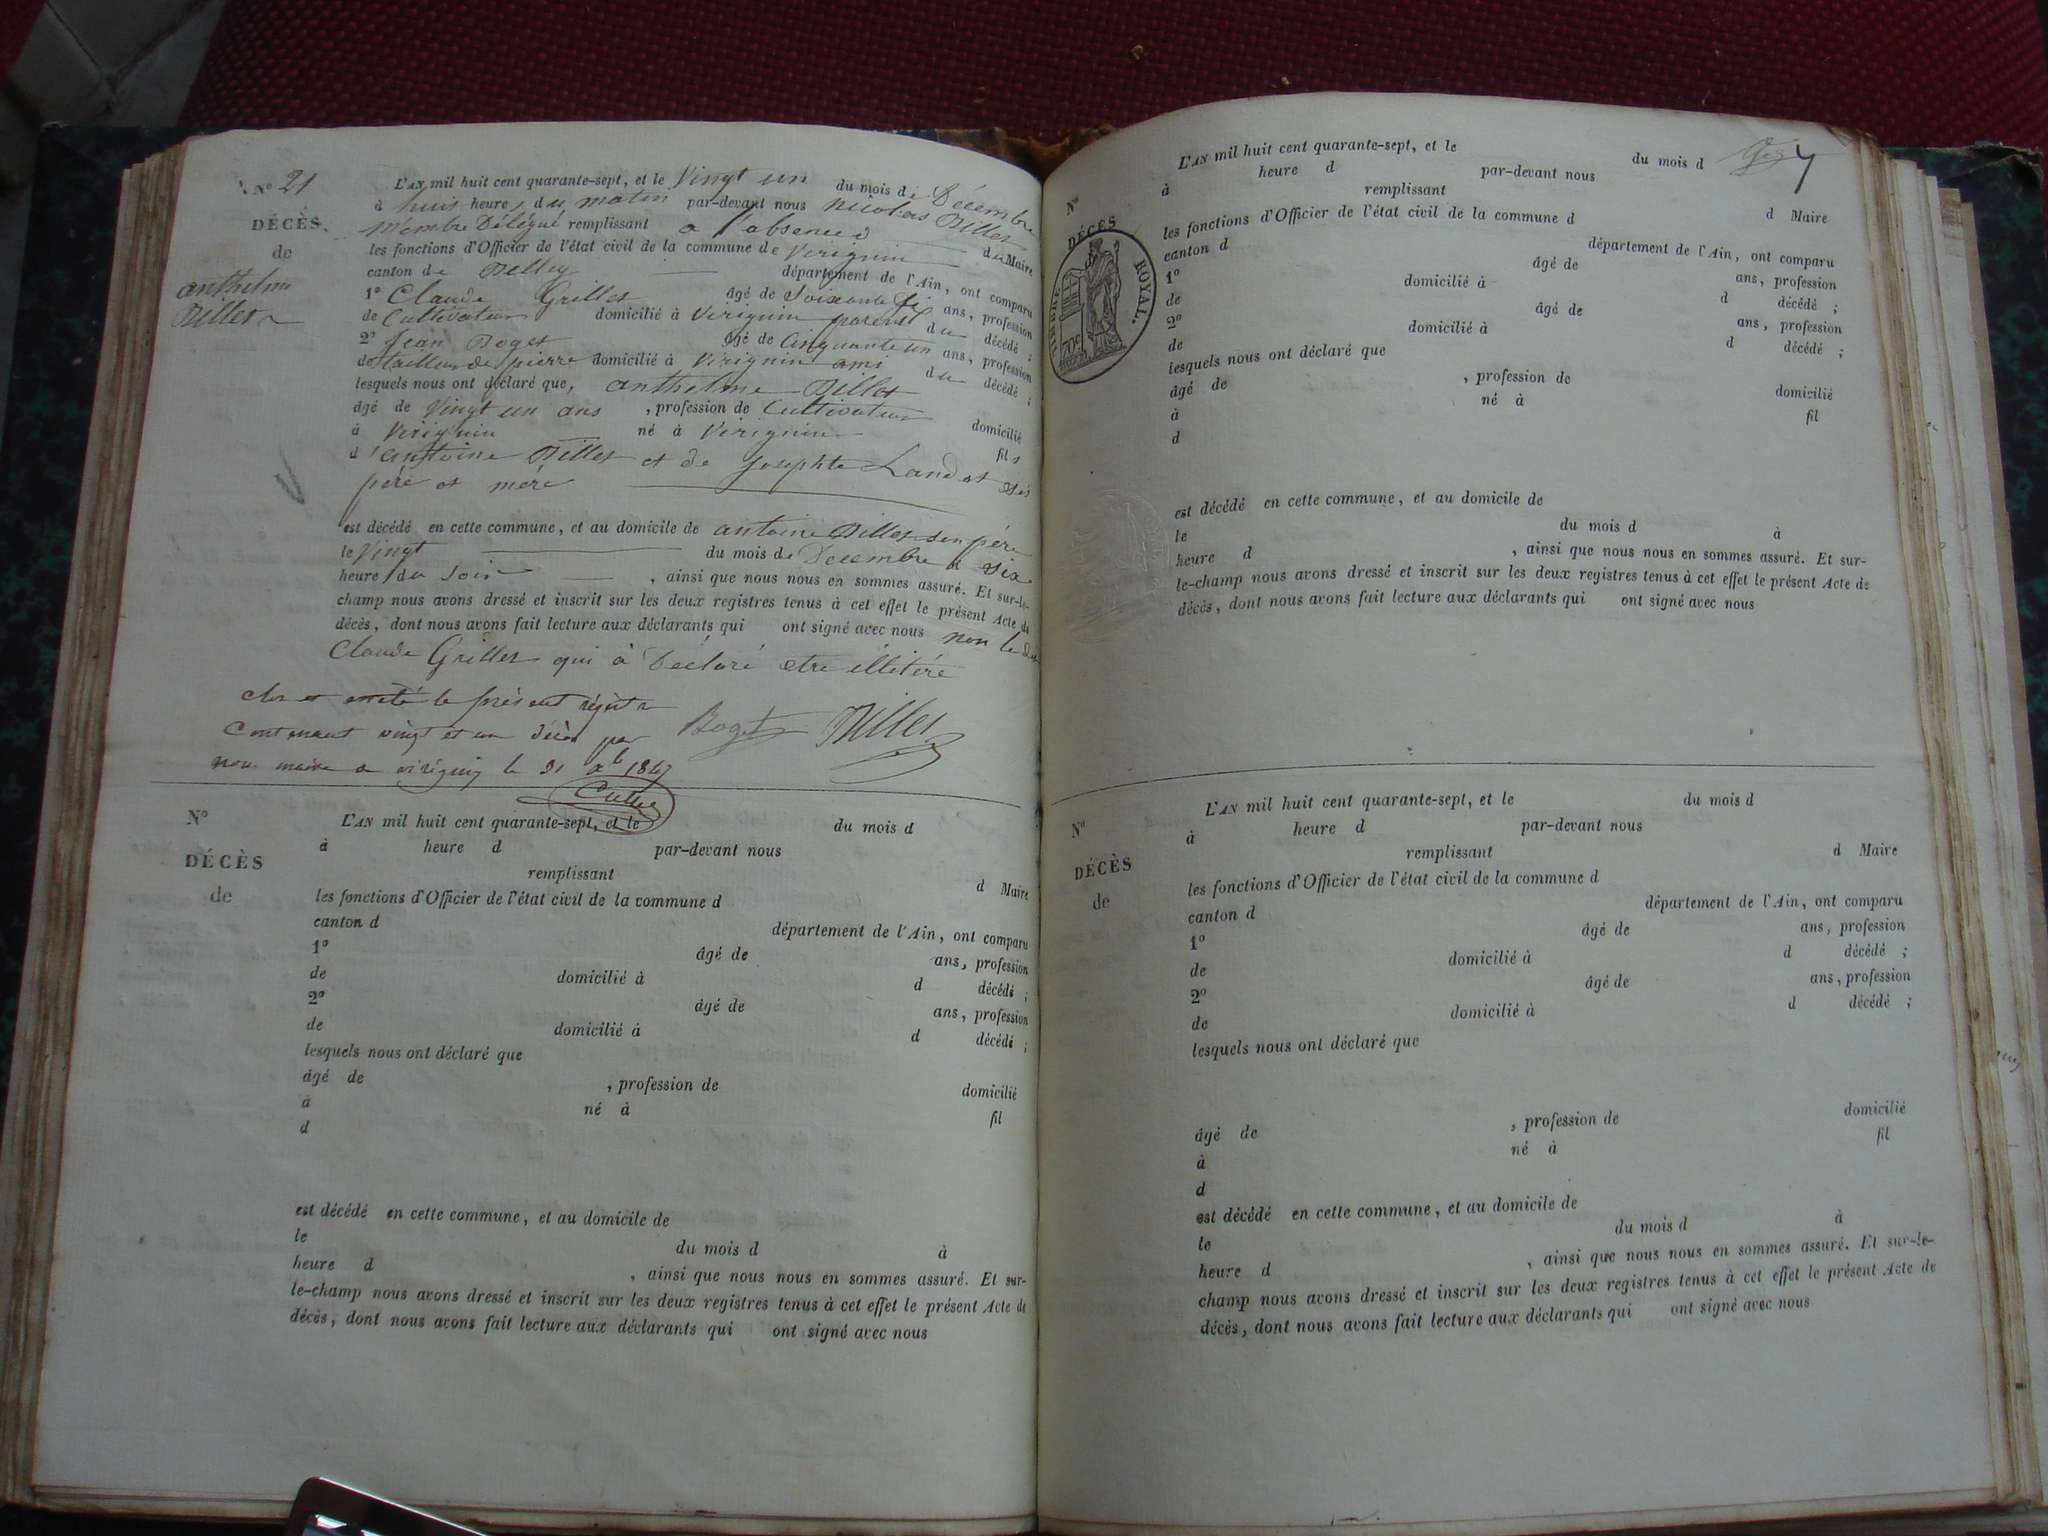 N° 21
DÉCÈS.
de
anthelme
Billet
L'AN mil huit cent quarante-sept, et le Vingt un du mois de Décembre
à huis heure du matin par-devant nous nicolas Billet
Membre Délégué remplissant a l'absence du Maire
les fonctions d'Officier de l'état civil de la commune de Virignin
canton de Belley département de l'Ain, ont comparu
1° Claude Grillet âgé de Soixante ans, profession
de Cultivateur domicilié à Virignin parent du décédé ;
2° Jean Boget âgé de Cinquante un ans, profession
de tailleur de pierre domicilié à Virignin ami du décédé ;
lesquels nous ont déclaré que, anthelme Billet
âgé de Vingt un ans , profession de Cultivateur domicilié
à Virignin né à Virignin fils
d'antoine Billet et de Josephte Landet ses
pére et mére
est décédé en cette commune, et au domicile de antoine Billet son pére
le Vingt du mois de Décembre à six
heure du Soir , ainsi que nous nous en sommes assuré. Et sur-le-
champ nous avons dressé et inscrit sur les deux registres tenus à cet effet le présent Acte de
décès, dont nous avons fait lecture aux déclarants qui ont signé avec nous non le dit
Claude Grillet qui à Déclaré etre illitéré
clos et arreté le présent régistre
Contenant vingt et un décès par
nous maire a virignin le 31 Xb 1847
Boget Billet
N°
DÉCÈS
de
L'AN mil huit cent quarante-sept, et le du mois d
à heure d par-devant nous
remplissant d Maire
les fonctions d'Officier de l'état civil de la commune d
canton d département de l'Ain, ont comparu
1° âgé de ans, profession
de domicilié à d décédé ;
2° âgé de ans, profession
de domicilié à d décédé ;
lesquels nous ont déclaré que
âgé de , profession de domicilié
à né à fil
d
est décédé en cette commune, et au domicile de
le du mois d à
heure d , ainsi que nous nous en sommes assuré. Et sur-
le-champ nous avons dressé et inscrit sur les deux registres tenus à cet effet le présent Acte de
décès, dont nous avons fait lecture aux déclarants qui ont signé avec nous
N°
DÉCÈS
TIMBRE ROYAL.
70c
L'AN mil huit cent quarante-sept, et le du mois d
à heure d par-devant nous
remplissant d Maire
les fonctions d'Officier de l'état civil de la commune d
canton d département de l'Ain, ont comparu
1° âgé de ans, profession
de domicilié à d décédé ;
2° âgé de ans, profession
de domicilié à d décédé ;
lesquels nous ont déclaré que
âgé de , profession de domicilié
à né à fil
d
est décédé en cette commune, et au domicile de
le du mois d à
heure d , ainsi que nous nous en sommes assuré. Et sur-
le-champ nous avons dressé et inscrit sur les deux registres tenus à cet effet le présent Acte de
décès, dont nous avons fait lecture aux déclarants qui ont signé avec nous
N°
DÉCÈS
de
L'AN mil huit cent quarante-sept, et le du mois d
à heure d par-devant nous
remplissant d Maire
les fonctions d'Officier de l'état civil de la commune d
canton d département de l'Ain, ont comparu
1° âgé de ans, profession
de domicilié à d décédé ;
2° âgé de ans, profession
de domicilié à d décédé ;
lesquels nous ont déclaré que
âgé de , profession de domicilié
à né à fil
d
est décédé en cette commune, et au domicile de
le du mois d à
heure d , ainsi que nous nous en sommes assuré. Et sur-le-
champ nous avons dressé et inscrit sur les deux registres tenus à cet effet le présent Acte de
décès, dont nous avons fait lecture aux déclarants qui ont signé avec nous